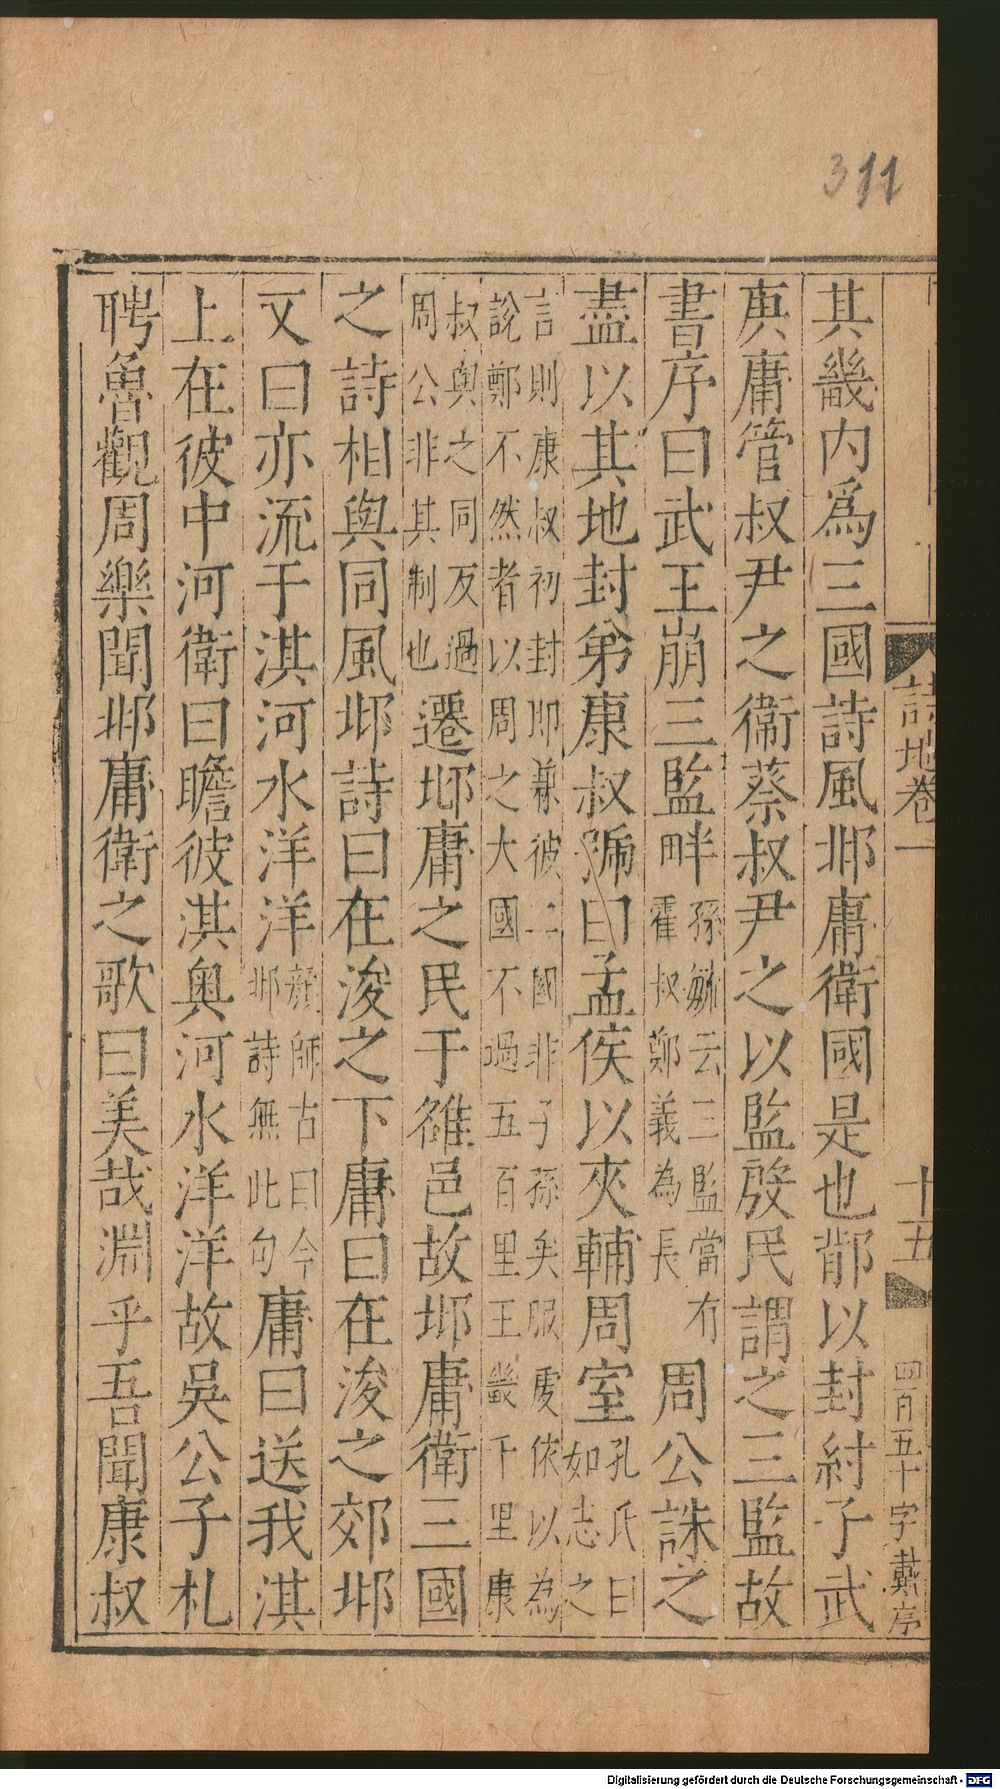 311
詩地卷一
十五
四百五十字戴序
其畿内爲三國詩風邶庸衛國是也鄁以封紂子武
庚庸管叔尹之衞蔡叔尹之以監殷民謂之三監故
書序曰武王崩三監畔孫毓云三監當有霍叔鄭義為長周公誅之
盡以其地封弟康叔號曰孟侯以夾輔周室孔氏曰如志之
言則康叔初封即兼彼二國非子孫矣服虔依以為
說鄭不然者以周之大國不過五百里王畿千里康
叔與之同反過周公非其制也遷邶庸之民于雒邑故邶庸衛三國
之詩相與同風邶詩曰在浚之下庸曰在浚之郊邶
又曰亦流于淇河水洋洋顏師古曰今邶詩無此句庸曰送我淇
上在彼中河衛曰瞻彼淇奥河水洋洋故吳公子札
聘魯觀周樂聞邶庸衛之歌曰美哉淵乎吾聞康叔
Digitalisierung gefördert durch die Deutsche Forschungsgemeinschaft - DFG